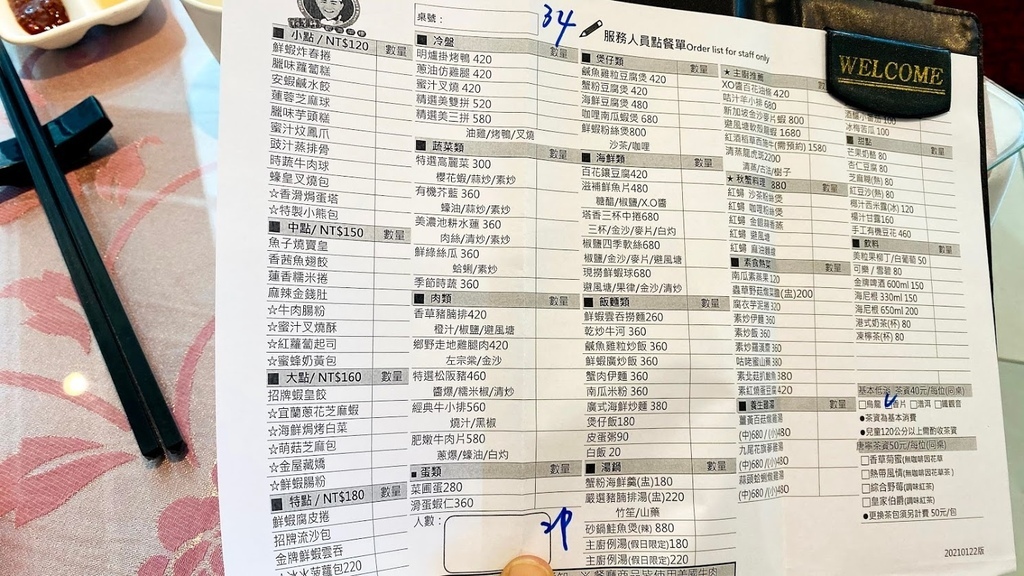 桌號：
34
服務人員點餐單Order list for staff only
WELCOME
小點 / NT$120 數量
鮮蝦炸春捲
臘味蘿蔔糕
安蝦鹹水餃
蓮蓉芝麻球
臘味芋頭糕
蜜汁炆鳳爪
豉汁蒸排骨
時蔬牛肉球
蠔皇叉燒包
☆香滑焗蛋塔
☆特製小熊包
中點/ NT$150 數量
魚子燒賣皇
香茜魚翅餃
蓮香糯米捲
麻辣金錢肚
☆牛肉腸粉
☆蜜汁叉燒酥
☆紅蘿蔔起司
☆蜜蜂奶黃包
大點/ NT$160 數量
招牌蝦皇餃
☆宜蘭蔥花芝麻蝦
☆海鮮焗烤白菜
☆萌菇芝麻包
☆金屋藏嬌
☆鮮蝦腸粉
特點 / NT$180 數量
鮮蝦腐皮捲
招牌流沙包
金牌鮮蝦雲吞
菠蘿包220
冷盤 數量
明爐掛烤鴨 420
蔥油仿雞腿 420
蜜汁叉燒 420
精選美雙拼 520
精選美三拼 580
油雞/烤鴨/叉燒
蔬菜類 數量
特選高麗菜 300
櫻花蝦/蒜炒/素炒
有機芥藍 360
蠔油/蒜炒/素炒
美濃池耕水蓮 360
肉絲/清炒/素炒
鮮綠絲瓜 360
蛤蜊/素炒
季節時蔬 360
肉類 數量
香草豬腩排420
橙汁/椒鹽/避風塘
鄉野走地雞肉420
左宗棠/金沙
特選松阪豬460
醬爆/糯米椒/清炒
經典牛小排560
燒汁/黑椒
肥嫩牛肉片580
蔥爆/蠔油/白灼
蛋類 數量
菜圃蛋280
滑蛋蝦仁360
人數：
2P
煲仔類 數量
鹹魚雞粒豆腐煲 420
蟹粉豆腐煲 420
海鮮豆腐煲 480
咖哩南瓜蝦煲 680
鮮蝦粉絲煲800
沙茶/咖哩
海鮮類 數量
百花鑲豆腐420
滋補鮮魚片480
糖醋/椒鹽/X.O醬
塔香三杯中捲680
三杯/金沙/麥片/白灼
椒鹽四季軟絲680
椒鹽/金沙/麥片/避風塘
現撈鮮蝦球680
避風塘/果律/金沙/清炒
飯麵類 數量
鮮蝦雲吞撈麵260
乾炒牛河 360
鹹魚雞粒炒飯 360
鮮蝦廣炒飯 360
蟹肉伊麵 360
南瓜米粉 360
廣式海鮮炒麵 380
煲仔飯180
皮蛋粥90
白飯 20
湯鍋 數量
蟹粉海鮮羹(盅)180
嚴選豬腩排湯(盅)220
竹笙/山藥
砂鍋鮭魚煲(辣) 880
主廚例湯(假日限定)180
主廚例湯(假日限定)220
★ 主廚推薦 數量
XO醬百花油條 420
咕汁羊小排 680
新加坡金沙麥片蝦 800
避風塘軟殼蝦 1680
紅酒稻草西施牛(需預約) 1580
清蒸龍虎斑2200
清蒸/古法/樹子
★ 秋蟹料理 880 數量
紅蟳 沙茶粉絲煲
紅蟳 咖哩粉絲煲
紅蟳 避風塘
紅蟳 麻油麵線
素食熱菜 數量
南瓜素蒸果 120
素炒伊麵 360
素炒飯 360
養生雞湯 數量
(中)680 / (小)480
(中)680 / (小)480
(中)680 / (小)480
冰梅苦瓜 100
甜點 數量
芒果奶酪 80
杏仁豆腐 80
芝麻糊(熱) 80
紅豆沙(熱) 80
椰汁西米露(冰) 120
楊汁甘露160
手工有機豆花 460
飲料 數量
美粒果柳丁/白葡萄 50
可樂 / 雪碧 80
金牌啤酒 600ml 150
海尼根 330ml 150
海尼根 650ml 200
港式奶茶(杯) 80
凍檸茶(杯) 80
基本低消 茶資40元/每位(回桌)
□烏龍 □香片 □普洱 □鐵觀音
●茶資為基本消費
●兒童120公分以上需酌收茶資
唐寧茶資50元/每位(回桌)
□香草菊蜜(無咖啡因花草)
□熱帶風情(無咖啡因花草茶)
□綜合野莓(調味紅茶)
□皇家伯爵(調味紅茶)
●更換茶包須另計費 50元/包
20210122版
※ 餐廳商品皆使用美國牛肉